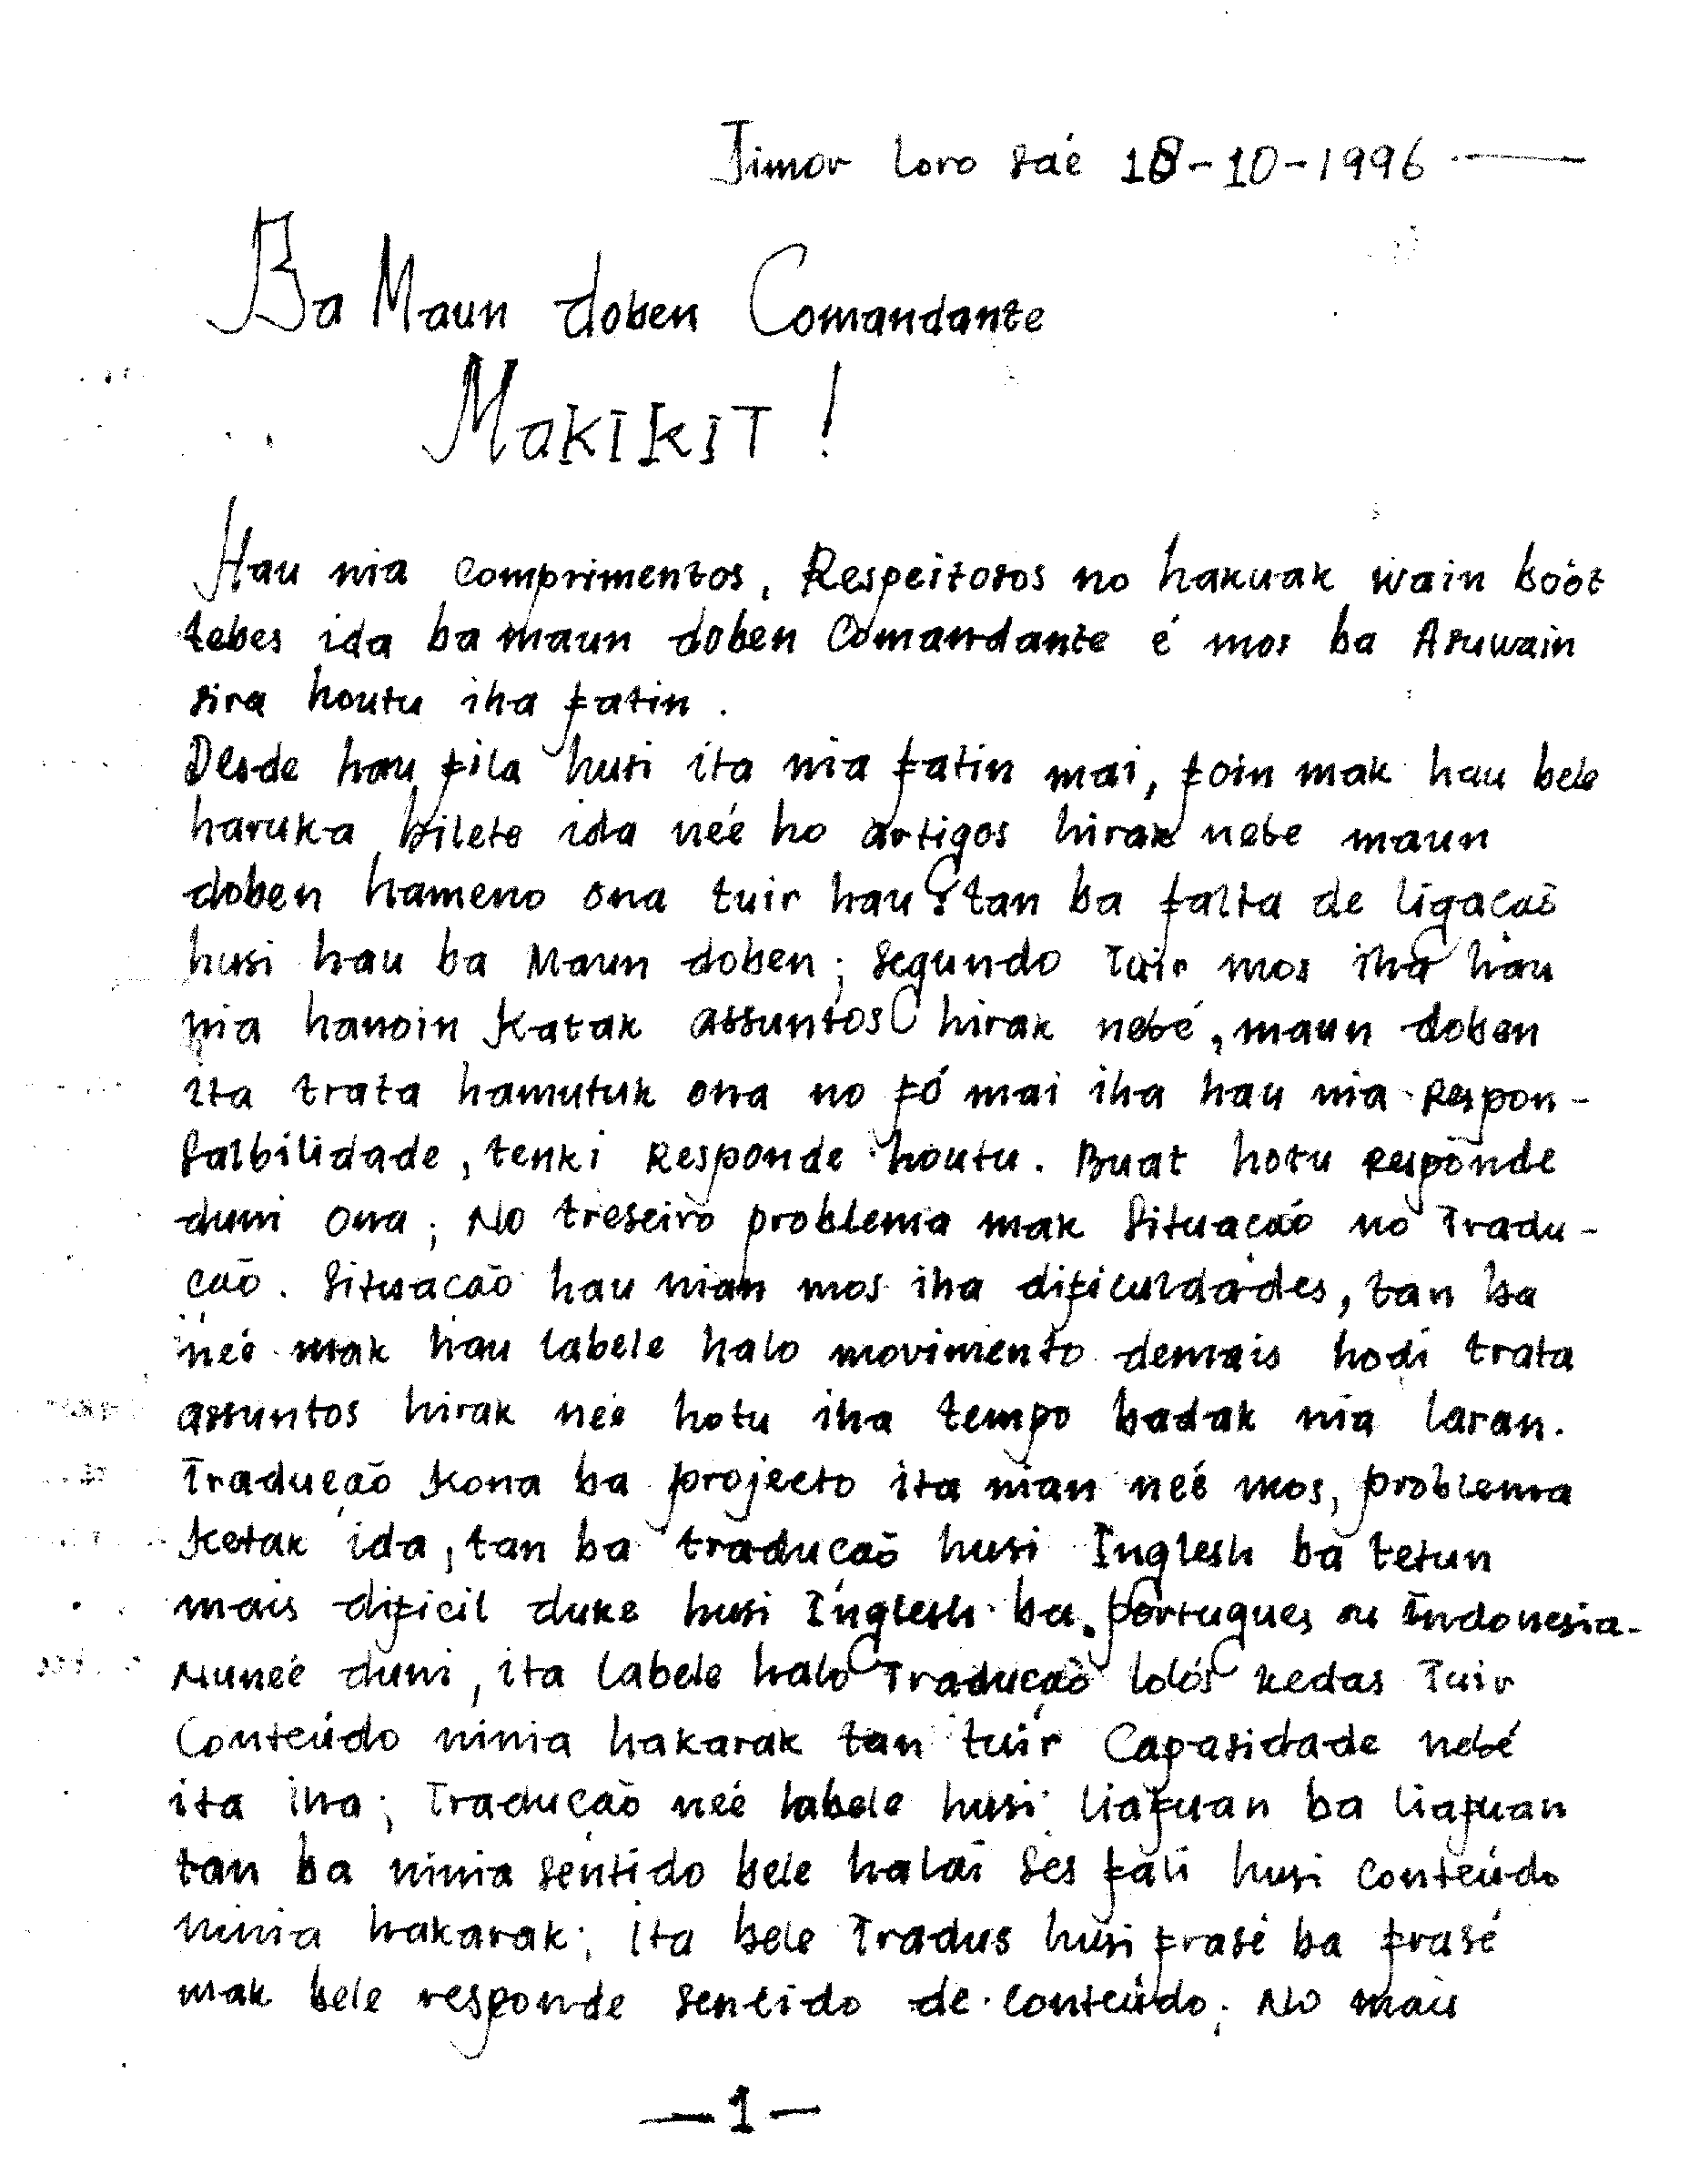 Timor Loro Sáe 18-10-1996
Ba Maun doben Comandante
MakIkIT!
Hau nia comprimentos, Respeitosos no hakuak wain boót
tebes ida ba maun doben Comandante é mos ba Asuwain
sira houtu iha fatin.
Desde hau fila husi ita nia fatin mai, foin mak hau bele
haruka bilete ida neé ho artigos hirak nebe maun
doben hameno ona tuir hau; tan ba falta de ligacaõ
husi hau ba Maun doben; segundo Tuir mos iha hau
nia hanoin katak assuntos hirak nebé, maun doben
ita trata hamutuk ona no fó mai iha hau nia Respon-
salbilidade, tenki Responde houtu. Buat hotu responde
duni ona; No treseiro problema mak Situacaõ no Tradu-
caõ. Situacaõ hau nian mos iha dificuldades, tan ba
neé mak hau labele halo movimento demais hodi trata
assuntos hirak neé hotu iha tempo badak nia laran.
Traduçaõ kona ba projecto ita nian neé mos, problema
ketak ida, tan ba traducaõ husi Inglesh ba tetun
mais dificil duke husi Inglesh ba portugues ou Indonesia-
Nuneé duni, ita labele halo Traduçaõ lolós kedas Tuir
Conteúdo ninia hakarak tan tuir Capasidade nebé
ita iha; Traduçaõ neé labele husi liafuan ba liafuan
tan ba ninia sentido bele halai ses fali husi conteúdo
ninia hakarak; Ita bele Tradus husi frasé ba frasé
mak bele responde sentido de conteúdo; No mais
-1-